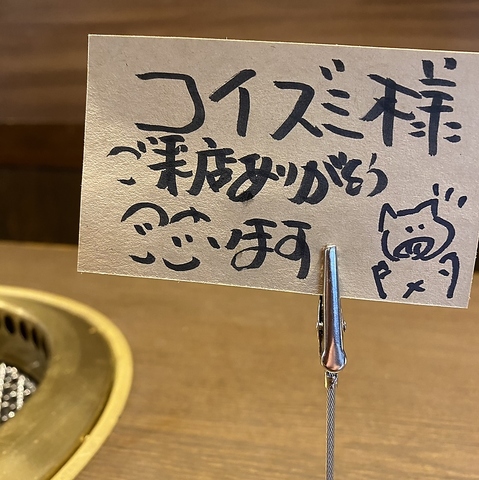 コイズミ様
ご来店ありがとう
ございます